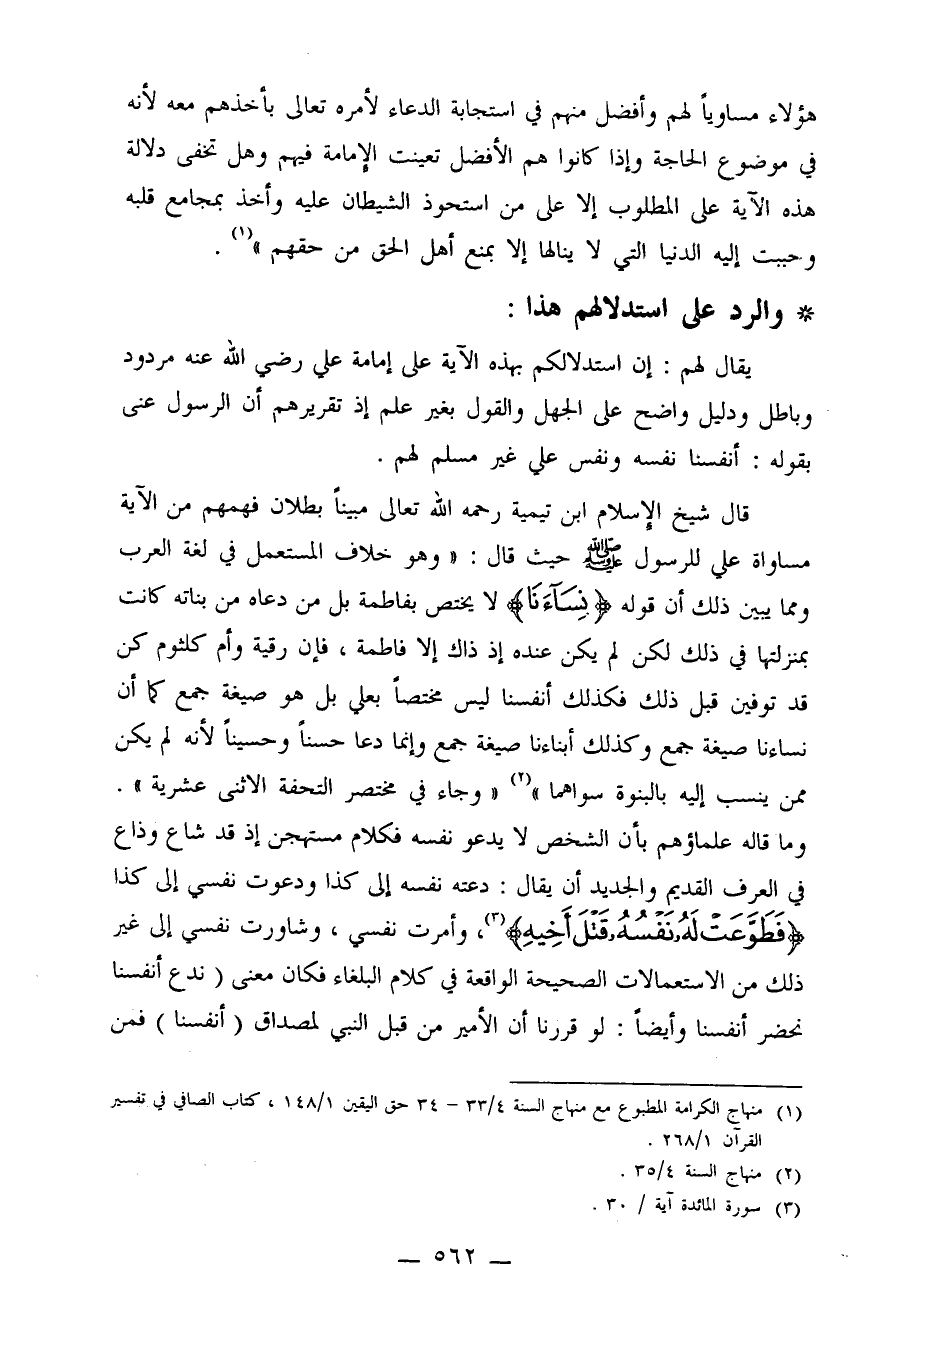 هؤلاء مساوياً لهم وأفضل منهم في استجابة الدعاء لأمره تعالى بأخذهم معه لأنه
في موضوع الحاجة وإذا كانوا هم الأفضل تعينت الإمامة فيهم وهل تخفى دلالة
هذه الآية على المطلوب إلا على من استحوذ الشيطان عليه وأخذ بمجامع قلبه
وحببت إليه الدنيا التي لا ينالها إلا بمنع أهل الحق من حقهم »(١) .
* والرد على استدلالهم هذا :
يقال لهم : إن استدلالكم بهذه الآية على إمامة علي رضي الله عنه مردود
وباطل ودليل واضح على الجهل والقول بغير علم إذ تقريرهم أن الرسول عنى
بقوله : أنفسنا نفسه ونفس علي غير مسلم لهم .
قال شيخ الإسلام ابن تيمية رحمه الله تعالى مبيناً بطلان فهمهم من الآية
مساواة علي للرسول ﷺ حيث قال : « وهو خلاف المستعمل في لغة العرب
ومما يبين ذلك أن قوله ﴿نِسَآءَنَا﴾ لا يختص بفاطمة بل من دعاه من بناته كانت
بمنزلتها في ذلك لكن لم يكن عنده إذ ذاك إلا فاطمة ، فإن رقية وأم كلثوم كن
قد توفين قبل ذلك فكذلك أنفسنا ليس مختصاً بعلي بل هو صيغة جمع كما أن
نساءنا صيغة جمع وكذلك أبناءنا صيغة جمع وإنما دعا حسناً وحسيناً لأنه لم يكن
ممن ينسب إليه بالبنوة سواهما »(٢) « وجاء في مختصر التحفة الاثنى عشرية » .
وما قاله علماؤهم بأن الشخص لا يدعو نفسه فكلام مستهجن إذ قد شاع وذاع
في العرف القديم والجديد أن يقال : دعته نفسه إلى كذا ودعوت نفسي إلى كذا
﴿فَطَوَّعَتْ لَهُۥ نَفْسُهُۥ قَتْلَ أَخِيهِ﴾(٣)، وأمرت نفسي ، وشاورت نفسي إلى غير
ذلك من الاستعمالات الصحيحة الواقعة في كلام البلغاء فكان معنى ( ندع أنفسنا
نحضر أنفسنا وأيضاً : لو قررنا أن الأمير من قبل النبي لمصداق ( أنفسنا ) فمن
(١) منهاج الكرامة المطبوع مع منهاج السنة ٣٣/٤ – ٣٤ حق اليقين ١٤٨/١ ، كتاب الصافي في تفسير
القرآن ٢٦٨/١ .
(٢) منهاج السنة ٣٥/٤ .
(٣) سورة المائدة آية / ٣٠ .
— ٥٦٢ —